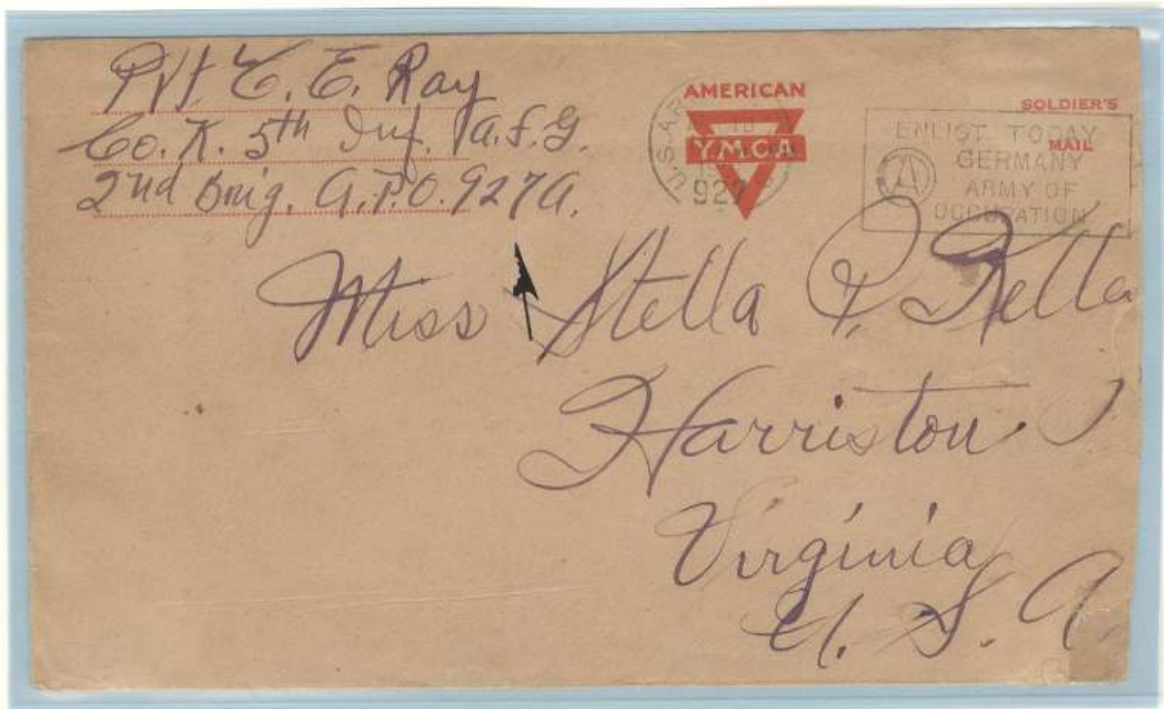 Pvt C. E. Ray
Co. K. 5th Inf. A.F.G.
2nd Brig. A.P.O. 927A.
AMERICAN
YMCA
U.S. AR
927
SOLDIER'S
MAIL
ENLIST TODAY
GERMANY
A
ARMY OF
OCCUPATION
Miss Stella P. Kella
Harriston
Virginia
U. S. A.